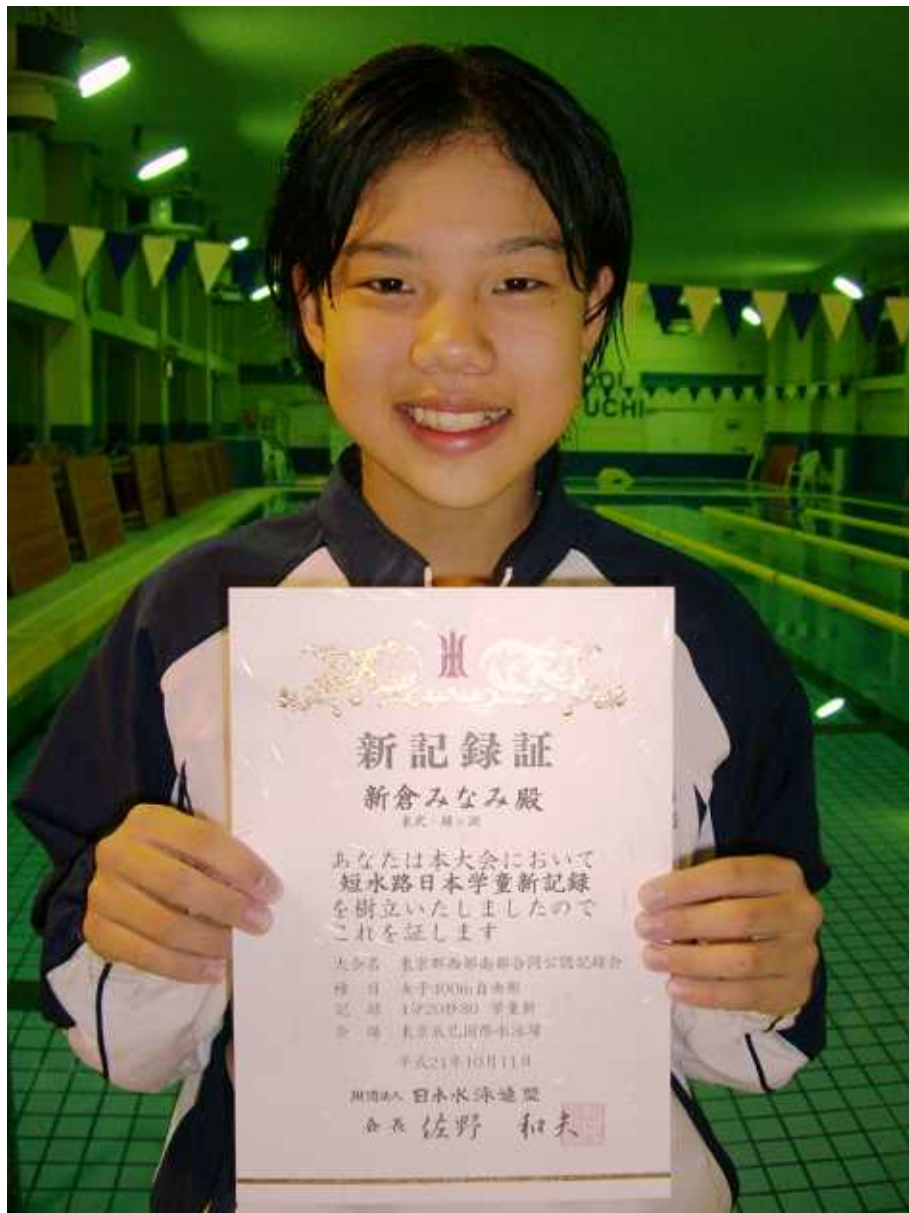 OOL
UCHI
新記録証
新倉みなみ殿
あなたは本大会において
短水路日本学童新記録
を樹立いたしましたので
これを証します
大会名 東京都西部南部合同公認記録会
種目 女子400m自由形
記録 学童新
会場 東京辰巳国際水泳場
平成21年10月11日
財団法人 日本水泳連盟
会長 佐野 和夫